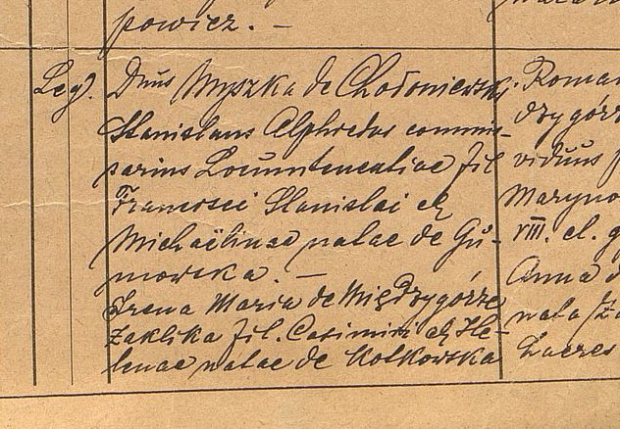 powicz. —
Leg.
Dnus Myszka de Chołoniewski
Stanislaus Alphredus commis-
sarius Locumtenentiae fil
Francisci Stanislai et
Michaëlinae natae de Gu-
mowska. —
Irena Maria de Międzygórze
Zaklika fil. Casimiri et He-
lenae natae de Kotkowska
Roman
dzygórz
viduus p
Maryno
VIII. cl. g
Anna d
nata Za
Lacres